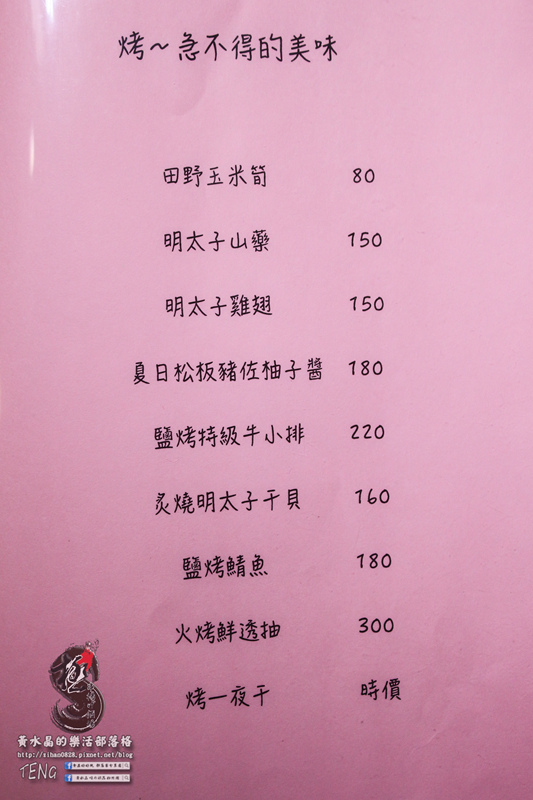 烤～急不得的美味
田野玉米筍 80
明太子山藥 150
明太子雞翅 150
夏日松板豬佐柚子醬 180
鹽烤特級牛小排 220
炙燒明太子干貝 160
鹽烤鯖魚 180
火烤鮮透抽 300
烤一夜干 時價
黃水晶的樂活部落格
http://sihao0828.pixnet.net/blog
TENG